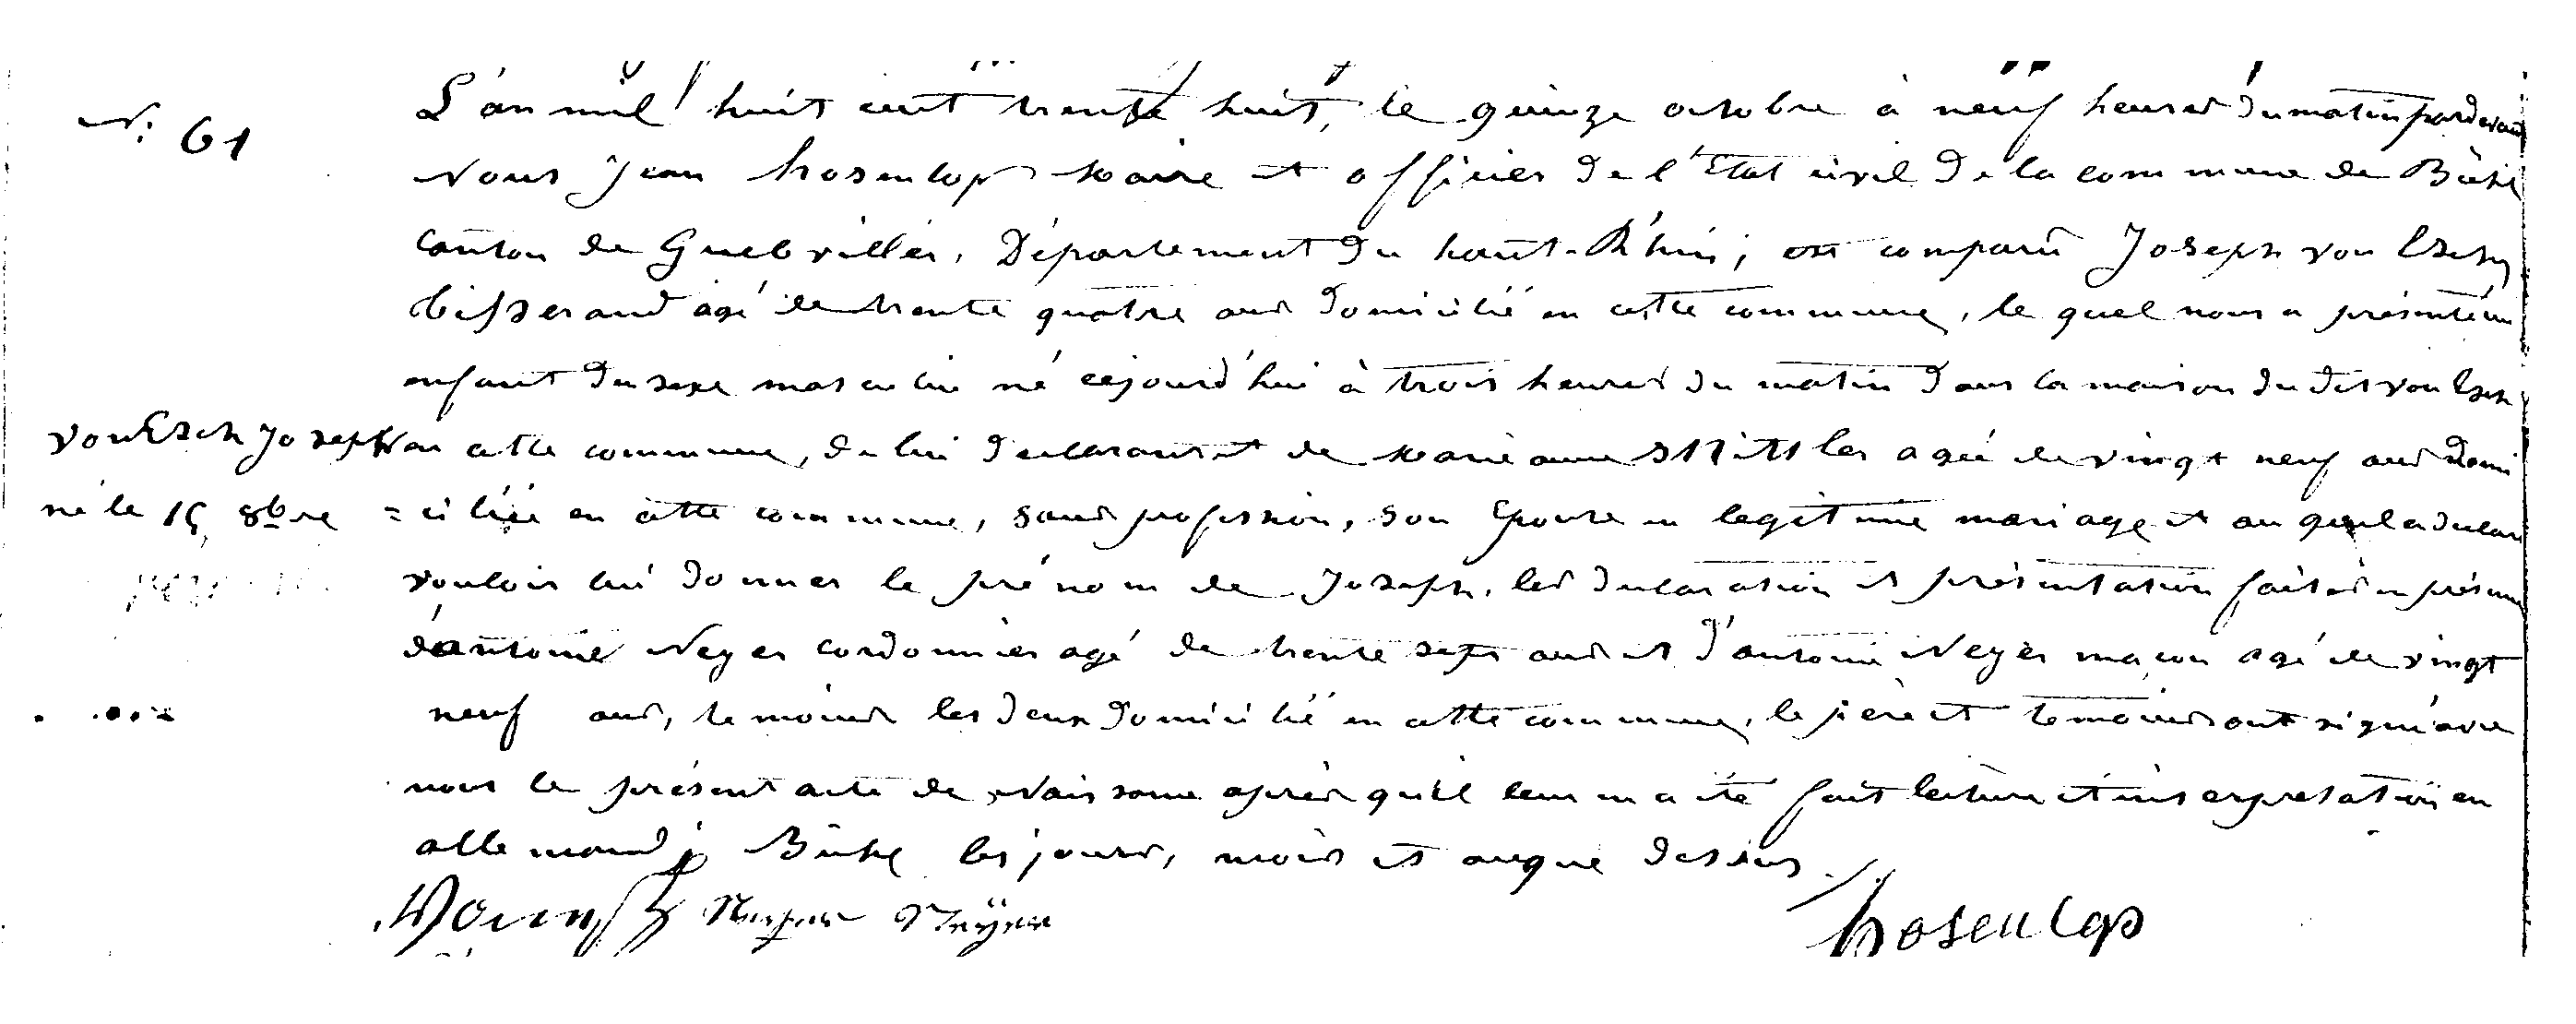 N.° 61
L'an mil huit cent trente huit, le quinze octobre à neuf heures du matin pardevant
Nous Jean hosenlop Maire et officier de l'Etat civil de la commune de Bühl
Canton de Guebviller, Département du haut-Rhin; est comparû Joseph von Esch
tisserand agé de trente quatre ans domicilié en cette commune, le quel nous a présenté un
enfant du sexe masculin né cejourd'hui à trois heures du matin dans la maison du dit von Esch
von Esch Joseph
né le 15 8bre
en cette commune, de lui declarant et de Marie anne agée de vingt neuf ans domi
=ciliée en cette commune, sans profession, son Epouse en legitime mariage et au quel a declaré
vouloir lui donner le prénom de Joseph, les declaration et présentation faites en présence
d'antoine Neyer cordonnier agé de trente sept ans et d'antoine Neyer maçon agé de vingt
neuf ans, temoins les deux domicilié en cette commune, le père et temoins ont signé avec
nous le présent acte de Naissance après qu'il leur en a été fait lecture et interpretation en
allemand à Bühl les jours, mois et an que dessus
Neyer hosenlop